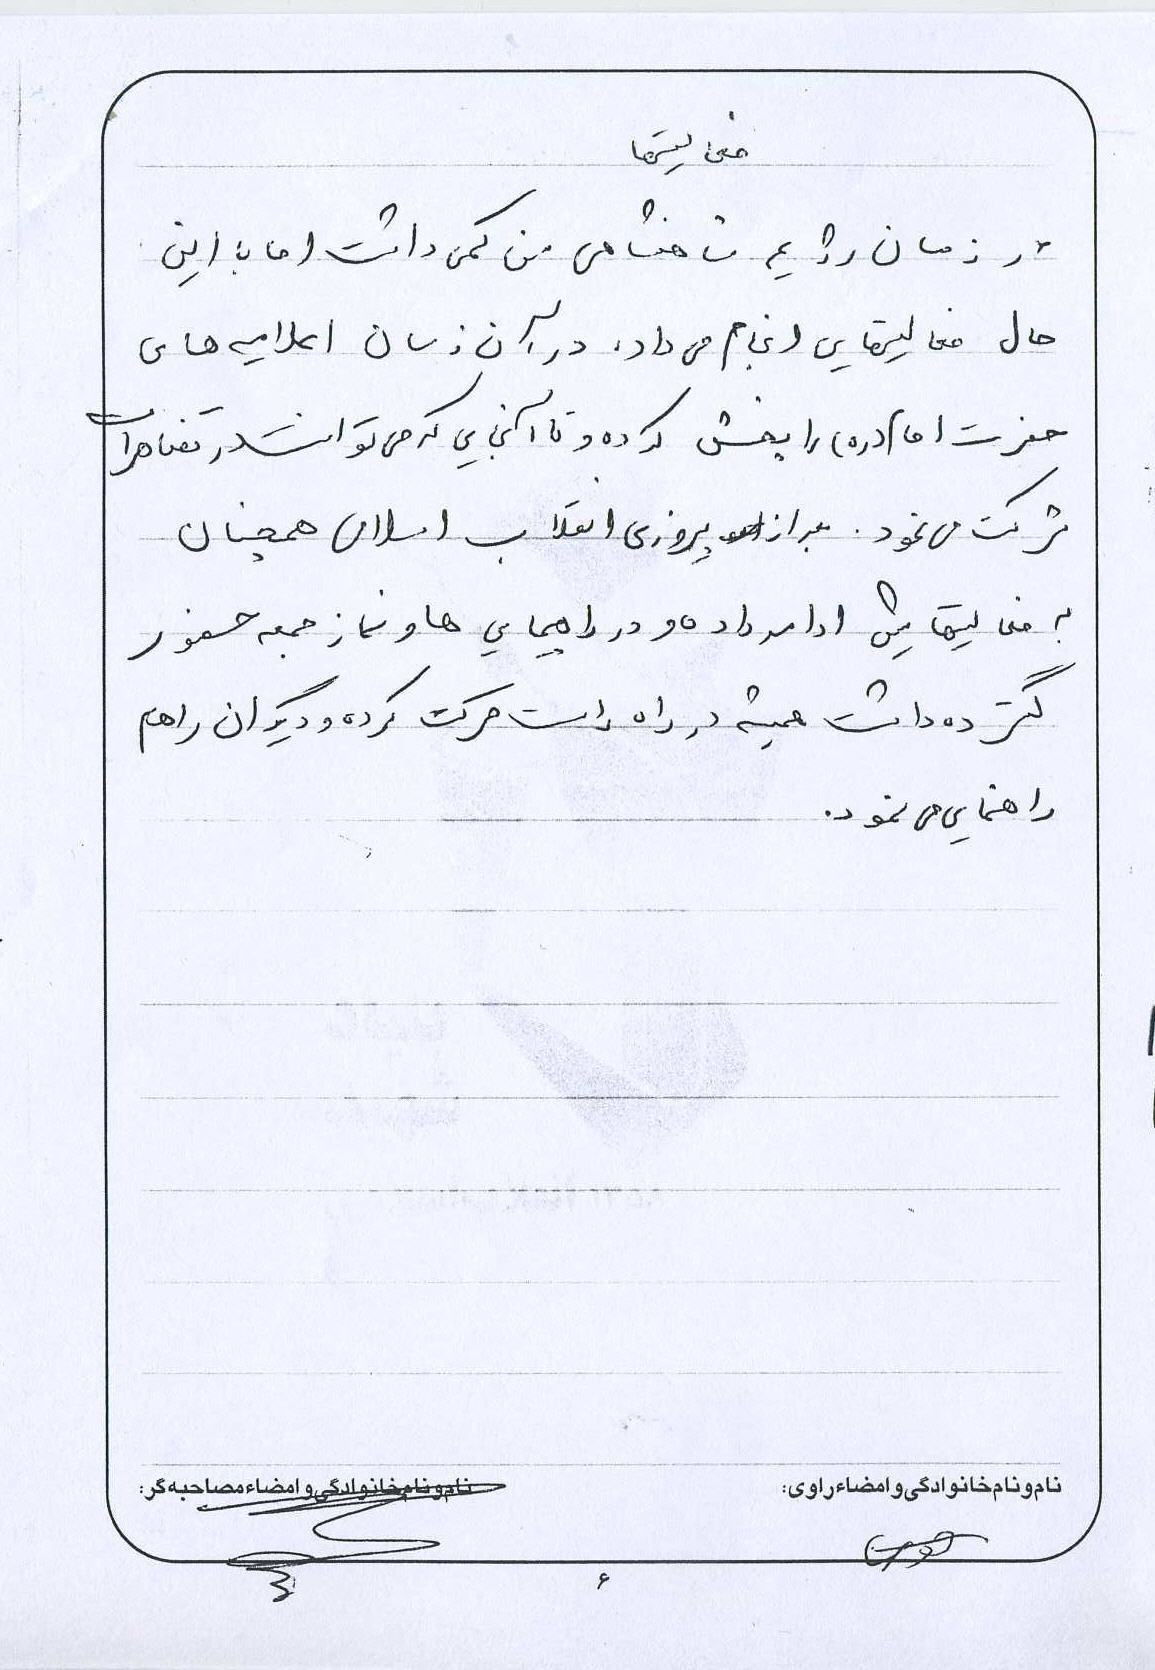 فعالیتها
در زمان رژیم شاهنشاهی سن کمی داشت اما با این
حال فعالیتهایی انجام می داد، در آن زمان اعلامیه های
حضرت امام (ره) را پخش کرده و تا آنجایی که می توانست در تظاهرات
شرکت می نمود. بعد از پیروزی انقلاب اسلامی همچنان
به فعالیتهایش ادامه داده و در راهپیمایی ها و نماز جمعه حضور
گسترده داشت همیشه در راه راست حرکت کرده و دیگران را هم
راهنمایی می نمود.
نام و نام خانوادگی و امضاء راوی:
نام و نام خانوادگی و امضاء مصاحبه گر:
۶